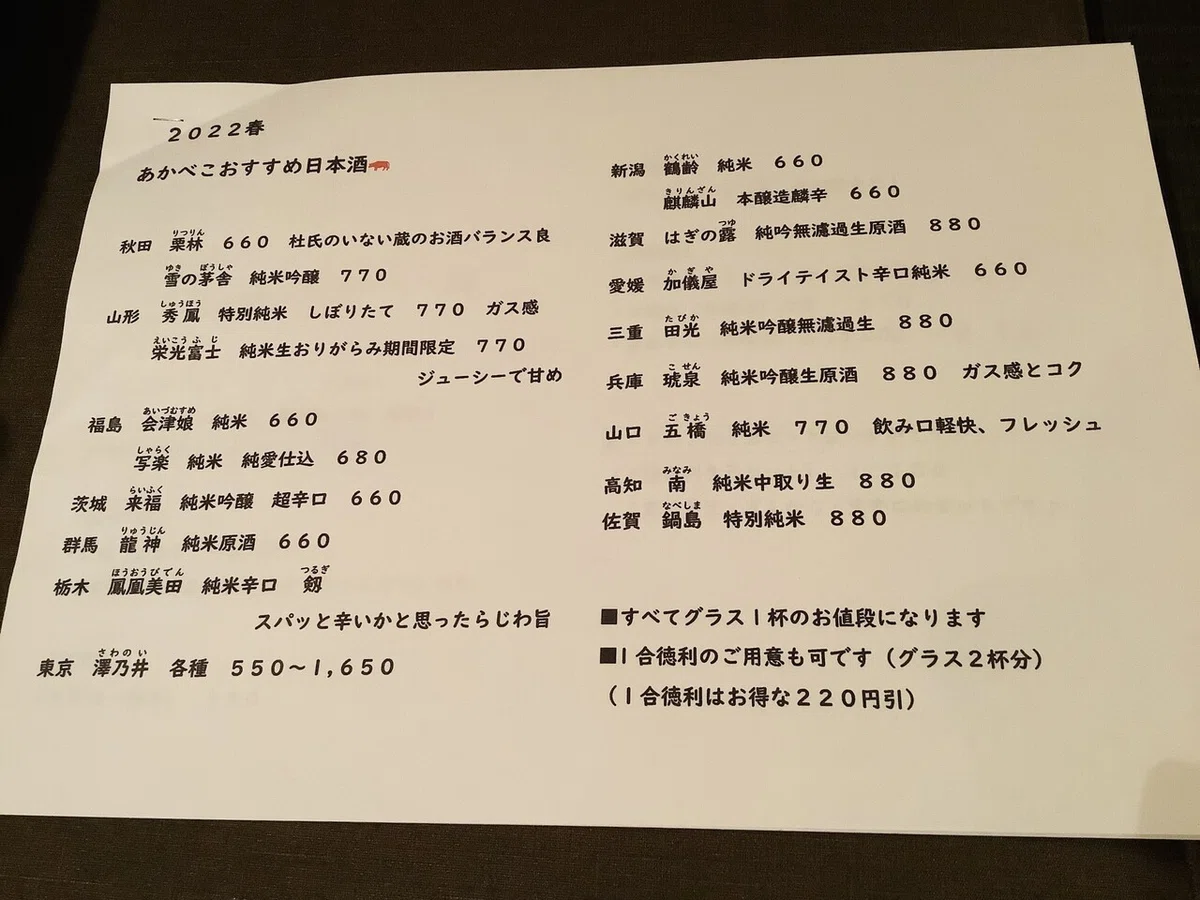 ２０２２春
あかべこおすすめ日本酒
秋田　栗林　６６０　杜氏のいない蔵のお酒バランス良
りつりん
雪の茅舎　純米吟醸　７７０
ゆき　ぼうしゃ
山形　秀鳳　特別純米　しぼりたて　７７０　ガス感
しゅうほう
栄光富士　純米生おりがらみ期間限定　７７０
えいこう ふ じ
ジューシーで甘め
福島　会津娘　純米　６６０
あいづむすめ
写楽　純米　純愛仕込　６８０
しゃらく
茨城　来福　純米吟醸　超辛口　６６０
らいふく
群馬　龍神　純米原酒　６６０
りゅうじん
栃木　鳳凰美田　純米辛口　剱
ほうおうびでん　つるぎ
スパッと辛いかと思ったらじわ旨
東京　澤乃井　各種　５５０～１,６５０
さわのい
新潟　鶴齢　純米　６６０
かくれい
麒麟山　本醸造麟辛　６６０
きりんざん
滋賀　はぎの露　純吟無濾過生原酒　８８０
つゆ
愛媛　加儀屋　ドライテイスト辛口純米　６６０
かぎや
三重　田光　純米吟醸無濾過生　８８０
たびか
兵庫　琥泉　純米吟醸生原酒　８８０　ガス感とコク
こ せん
山口　五橋　純米　７７０　飲み口軽快、フレッシュ
ご きょう
高知　南　純米中取り生　８８０
みなみ
佐賀　鍋島　特別純米　８８０
なべしま
■すべてグラス１杯のお値段になります
■１合徳利のご用意も可です（グラス２杯分）
（１合徳利はお得な２２０円引）